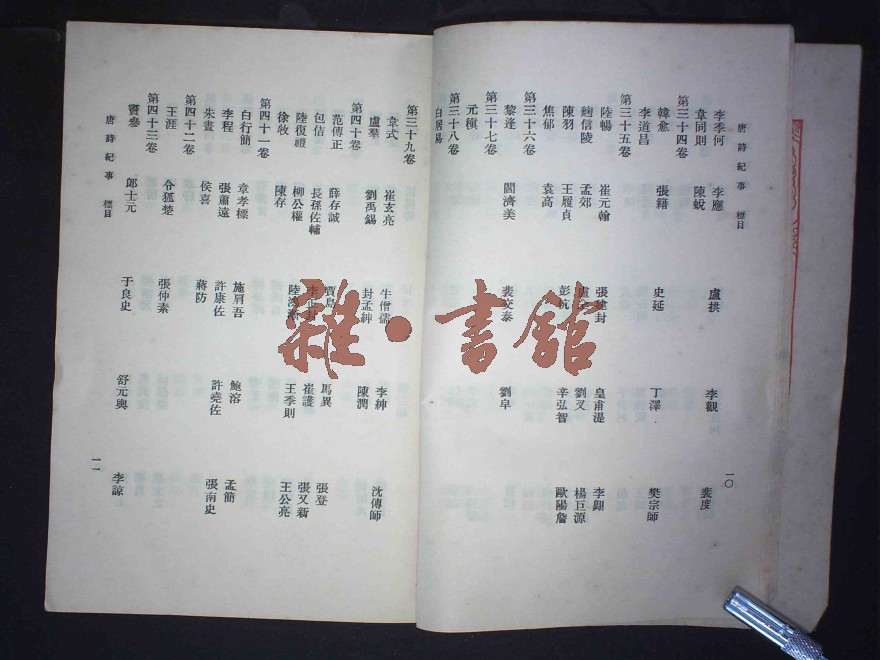 唐詩紀事 標目
一〇
李季何 李應 盧拱 李觀 裴度
韋同則 陳蛻
第三十四卷
韓愈 張籍 史延 丁澤 樊宗師
李道昌
第三十五卷
陸暢 崔元翰 張建封 皇甫湜 李翺
麴信陵 孟郊 盧仝 劉叉 楊巨源
陳羽 王履貞 彭伉 辛弘智 歐陽詹
焦郁 袁高
第三十六卷
黎逢 閻濟美 裴交泰 劉阜
第三十七卷
元稹
第三十八卷
白居易
第三十九卷
韋式 崔玄亮 牛僧孺 李紳 沈傳師
盧羣 劉禹錫 封孟紳 陳潤
第四十卷
范傳正 薛存誠 賈島 馬異 張登
包佶 長孫佐輔 崔護 張又新
陸復禮 柳公權 王季則 王公亮
徐牧 陳存
第四十一卷
白行簡 章孝標 施肩吾 鮑溶 孟簡
李程 張蕭遠 許康佐 許堯佐 張南史
朱晝 侯喜 蔣防
第四十二卷
王涯 令狐楚 張仲素
第四十三卷
竇參 郎士元 于良史 舒元輿 李諒
唐詩紀事 標目
一一
雜·書館